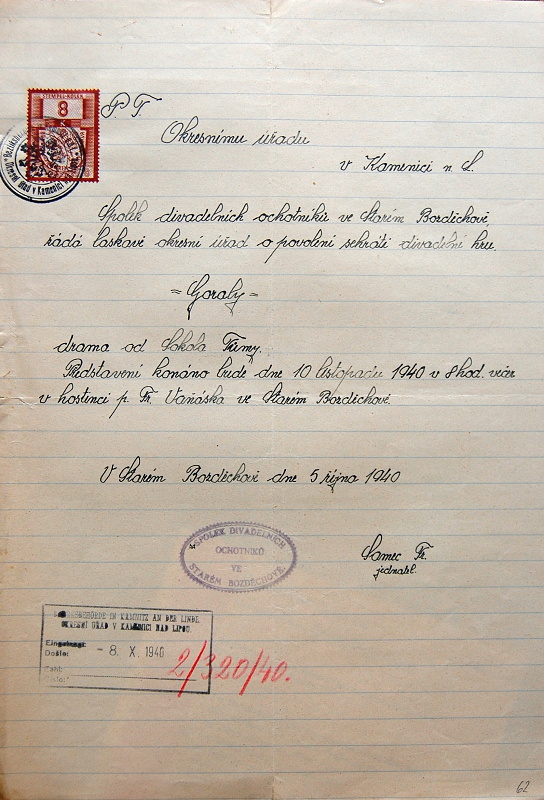 STEMPEL-KOLEK
8
K
P. T.
Okresnímu úřadu
v Kamenici n. L.
Spolek divadelních ochotníků ve Starém Bozděchově
řádá laskavě okresní úřad o povolení sehráti divadelní hru.
=Goraly=
drama od Sokola Tůmy.
Představení konáno bude dne 10 listopadu 1940 v 8 hod. večer
v hostinci p. Fr. Vaňáska ve Starém Bozděchově.
V Starém Bozděchově dne 5 října 1940
SPOLEK DIVADELNÍCH
OCHOTNÍKŮ
VE
STARÉM BOZDĚCHOVĚ.
Samec Fr.
jednatel.
IN KAMNITZ AN DER LINDE.
OKRESNÍ ÚŘAD V KAMENICI NAD LIPOU.
Eingelangt:
Došlo: - 8. X. 1940
Zahl:
2/320/40.
62